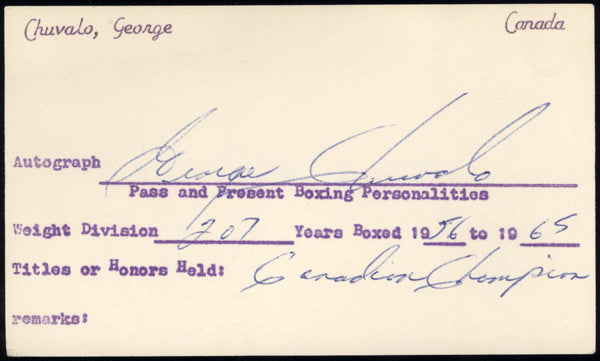 Chuvalo, George Canada
Autograph George Chuvalo
Pass and Present Boxing Personalities
Weight Division 207 Years Boxed 1956 to 1965
Titles or Honors Held: Canadian Champion
remarks: